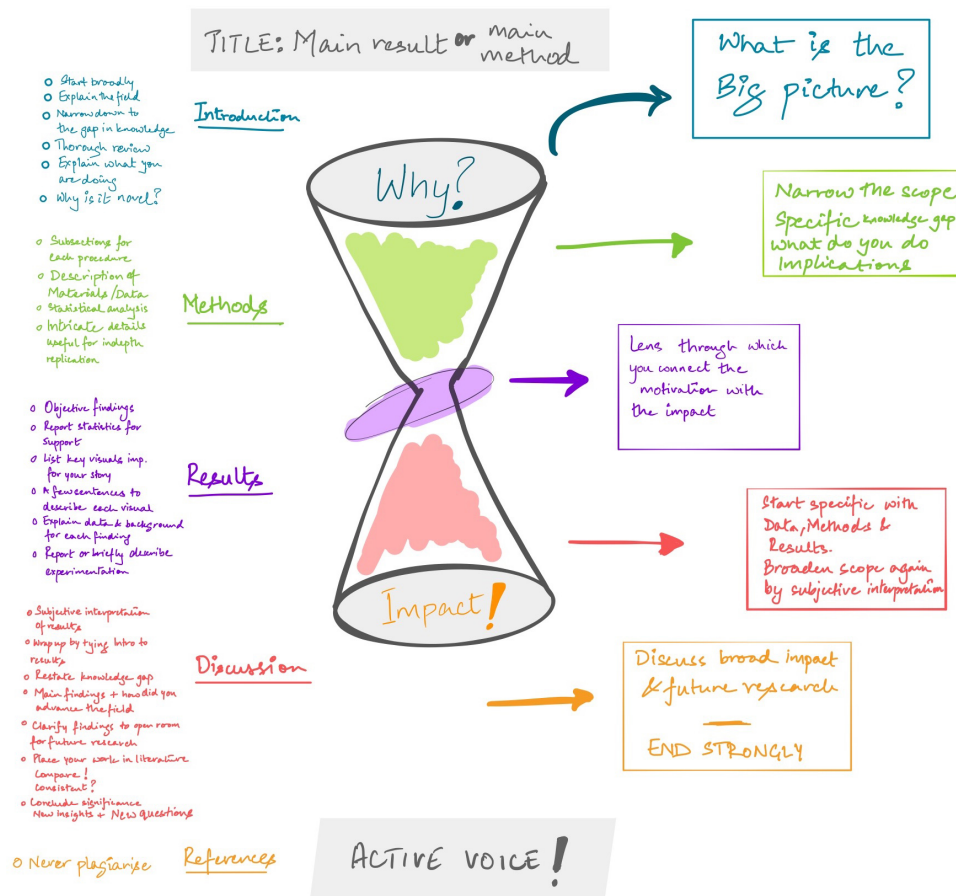 TITLE: Main result or main method
What is the
Big picture?
Introduction
Start broadly
Explain the field
Narrow down to
the gap in knowledge
Thorough review
Explain what you
are doing
Why is it novel?
Why?
Narrow the scope
Specific knowledge gap
what do you do
Implications
Methods
Subsections for
each procedure
Description of
Materials/Data
Statistical analysis
Intricate details
useful for indepth
replication
Lens through which
you connect the
motivation with
the impact
Results
Objective findings
Report statistics for
support
List key visuals imp.
for your story
A few sentences to
describe each visual
Explain data & background
for each finding
Report or briefly describe
experimentation
Start specific with
Data, Methods &
Results.
Broaden scope again
by subjective interpretation
Impact!
Discussion
Subjective interpretation
of results
Wrap up by tying Intro to
results
Restate knowledge gap
Main findings + how did you
advance the field
Clarify findings to open room
for future research
Place your work in literature
Compare!
Consistent?
Conclude significance
New Insights + New Questions
Discuss broad impact
& future research
END STRONGLY
References
Never plagiarise
ACTIVE VOICE!